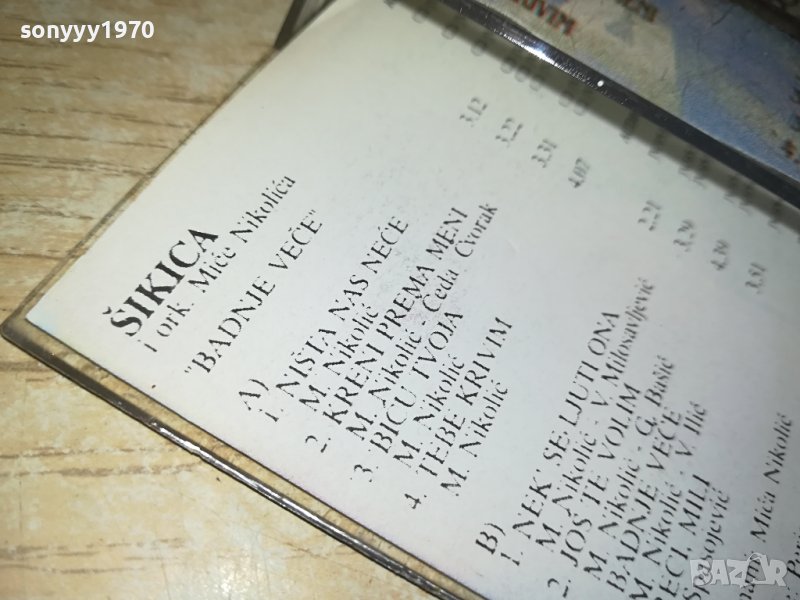 sonyyy1970
ŠIKICA
i ork. Miće Nikolića
"BADNJE VEČE"
A)
1. NIŠTA NAS NEĆE 3.12
M. Nikolić
2. KRENI PREMA MENI 3.22
M. Nikolić - Čeda Čvorak
3. BIĆU TVOJA 3.31
M. Nikolić
4. TEBE KRIVIM 4.07
M. Nikolić
B)
1. NEK' SE LJUTI ONA 2.21
M. Nikolić - V. Milosavljević
2. JOŠ TE VOLIM 3.29
M. Nikolić - G. Bašić
BADNJE VEČE 4.39
M. Nikolić - V. Ilić
MILI 3.51
Mića Nikolić
KRIVIM
bazar.bg